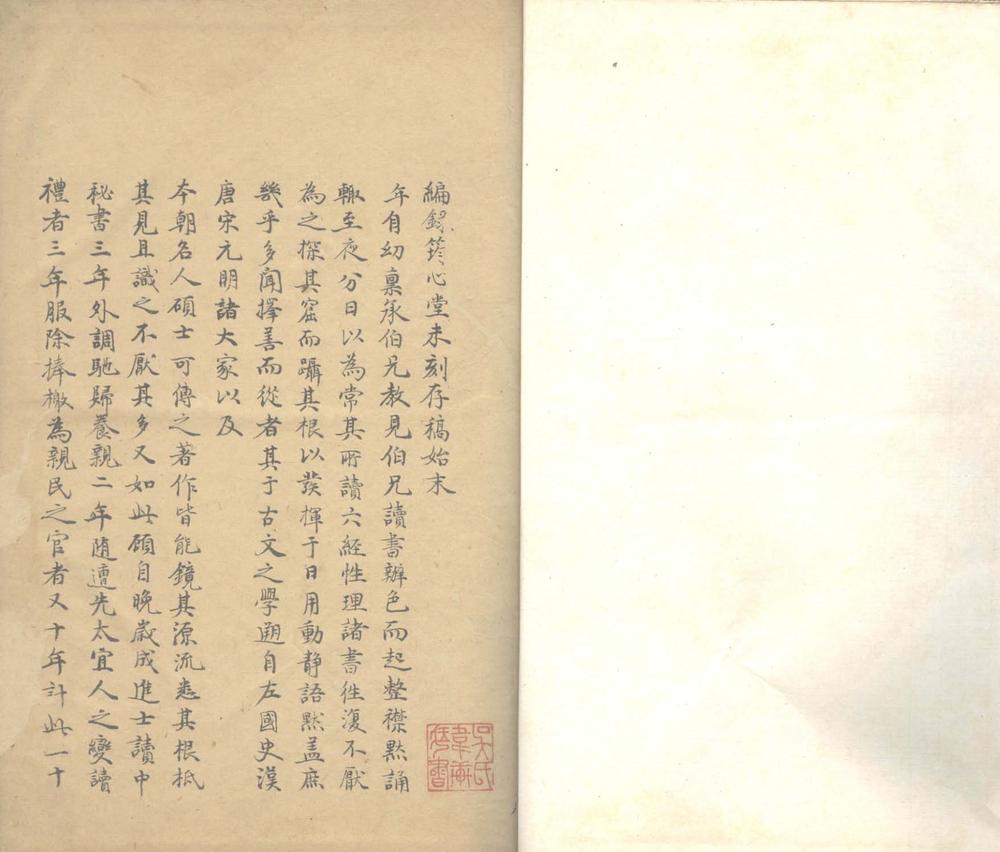 編録箊心堂未刻存稿始末
年自幼稟承伯兄教見伯兄讀書辦色而起整襟默誦
輙至夜分日以為常其所讀六経性理諸書徃復不厭
為之探其窟而躡其根以發揮于日用動静語黙盖庶
幾乎多聞擇善而從者其于古文之學遡自左國史漢
唐宋元明諸大家以及
本朝名人碩士可傳之著作皆能鏡其源流悉其根柢
其見且識之不厭其多又如此顧自晚歳成進士讀中
秘書三年外調馳歸養親二年随遭先太宜人之變讀
禮者三年服除捧檄為親民之官者又十年計此一十
吳氏
韋甫
書